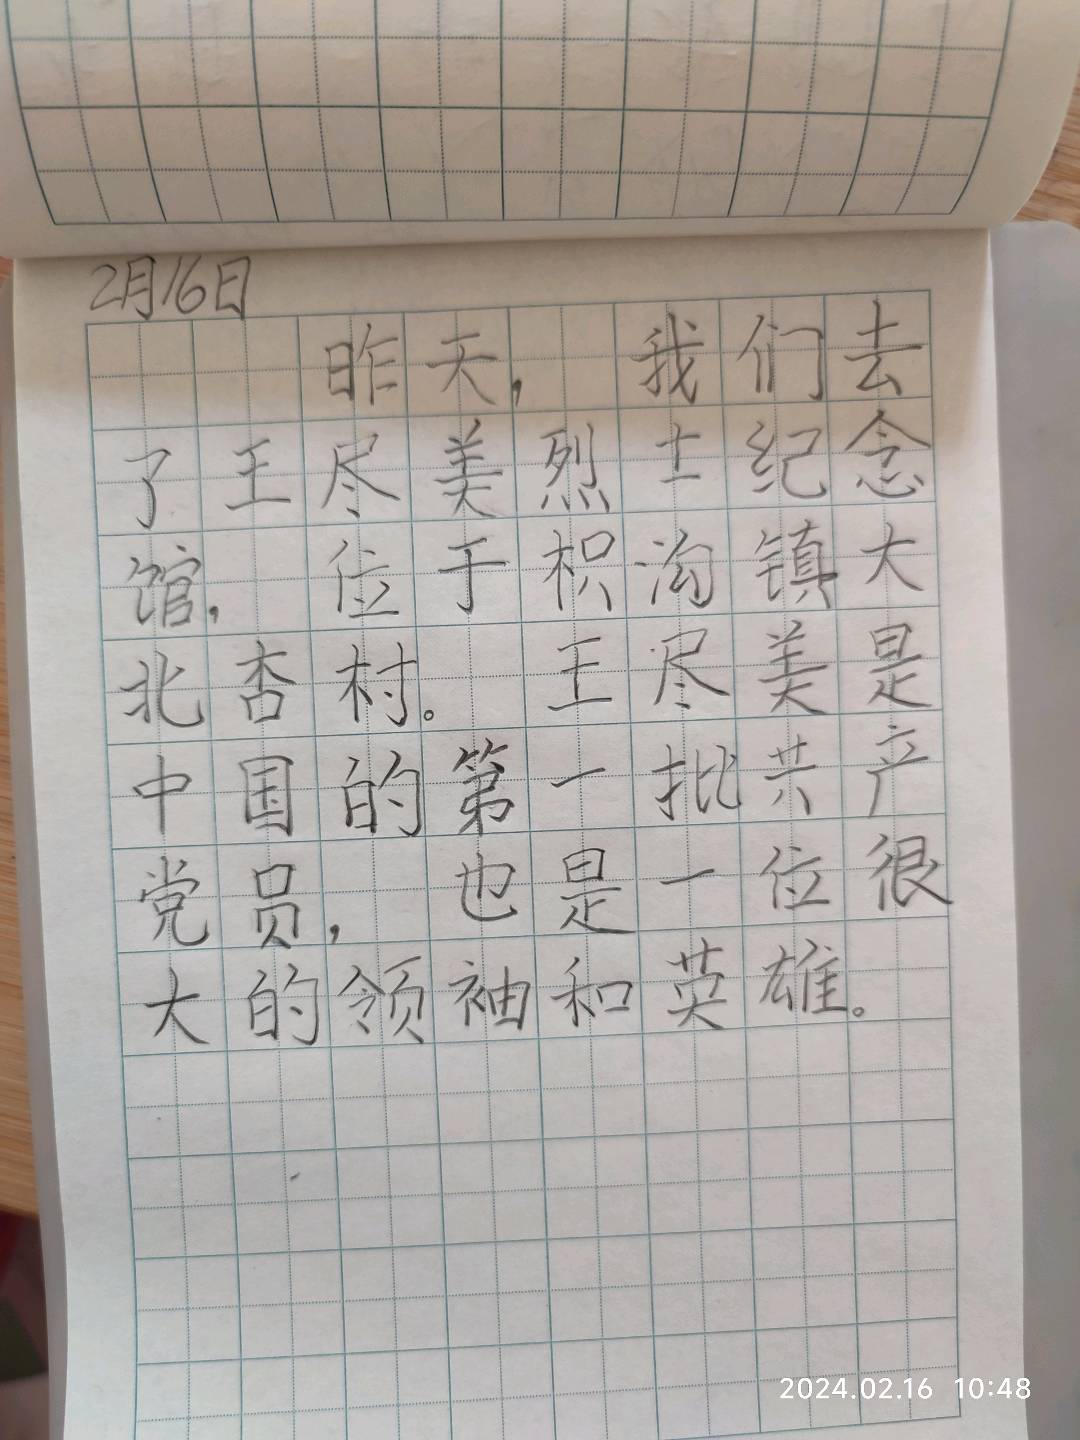 2月16日
昨天，我们去
了王尽美烈士纪念
馆，位于枳沟镇大
北杏村。王尽美是
中国的第一批共产
党员，也是一位很
大的领袖和英雄。
2024.02.16 10:48